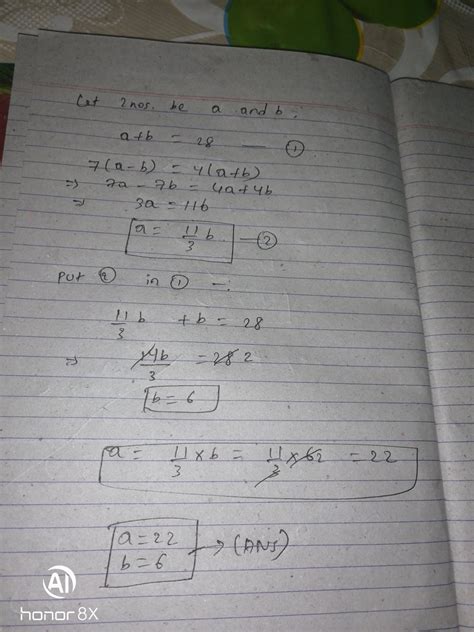 Let 2 nos. be a and b ;
a+b = 28 — ①
7(a-b) = 4(a+b)
⇒ 7a - 7b = 4a + 4b
⇒ 3a = 11b
a = 11/3 b — ②
Put ② in ① -:
11/3 b + b = 28
⇒ 14b/3 = 28 2
b = 6
a = 11/3 × b = 11/3 × 6 2 = 22
a = 22
b = 6 → (ANS)
AI
honor 8X